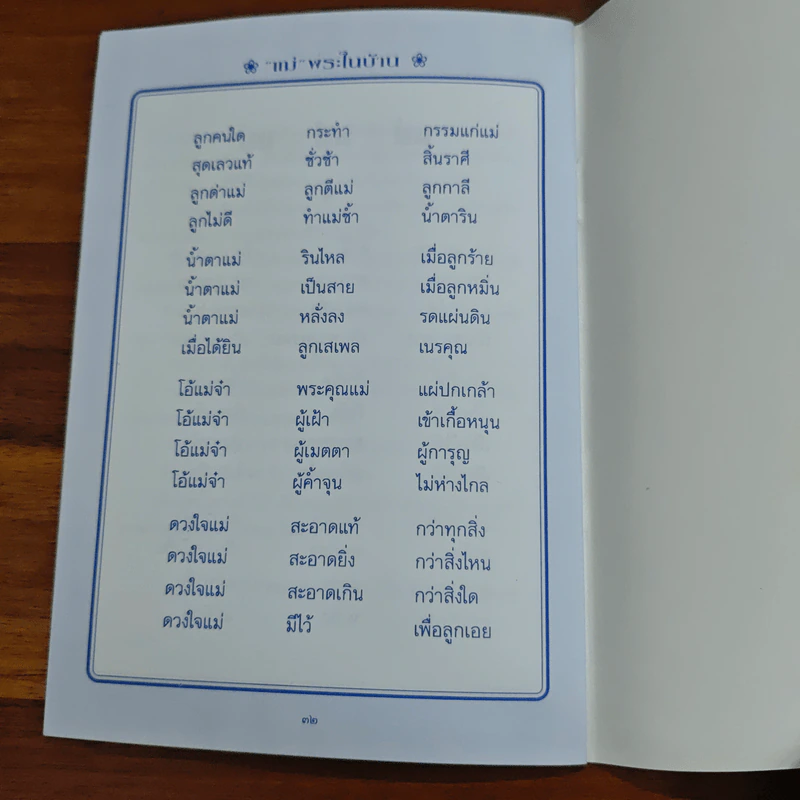 "แม่" พระในบ้าน
ลูกคนใด กระทำ กรรมแก่แม่
สุดเลวแท้ ชั่วช้า สิ้นราศี
ลูกด่าแม่ ลูกตีแม่ ลูกกาลี
ลูกไม่ดี ทำแม่ช้ำ น้ำตาริน
น้ำตาแม่ รินไหล เมื่อลูกร้าย
น้ำตาแม่ เป็นสาย เมื่อลูกหมิ่น
น้ำตาแม่ หลั่งลง รดแผ่นดิน
เมื่อได้ยิน ลูกเสเพล เนรคุณ
โอ้แม่จ๋า พระคุณแม่ แผ่ปกเกล้า
โอ้แม่จ๋า ผู้เฝ้า เข้าเกื้อหนุน
โอ้แม่จ๋า ผู้เมตตา ผู้การุญ
โอ้แม่จ๋า ผู้ค้ำจุน ไม่ห่างไกล
ดวงใจแม่ สะอาดแท้ กว่าทุกสิ่ง
ดวงใจแม่ สะอาดยิ่ง กว่าสิ่งไหน
ดวงใจแม่ สะอาดเกิน กว่าสิ่งใด
ดวงใจแม่ มีไว้ เพื่อลูกเอย
๓๒